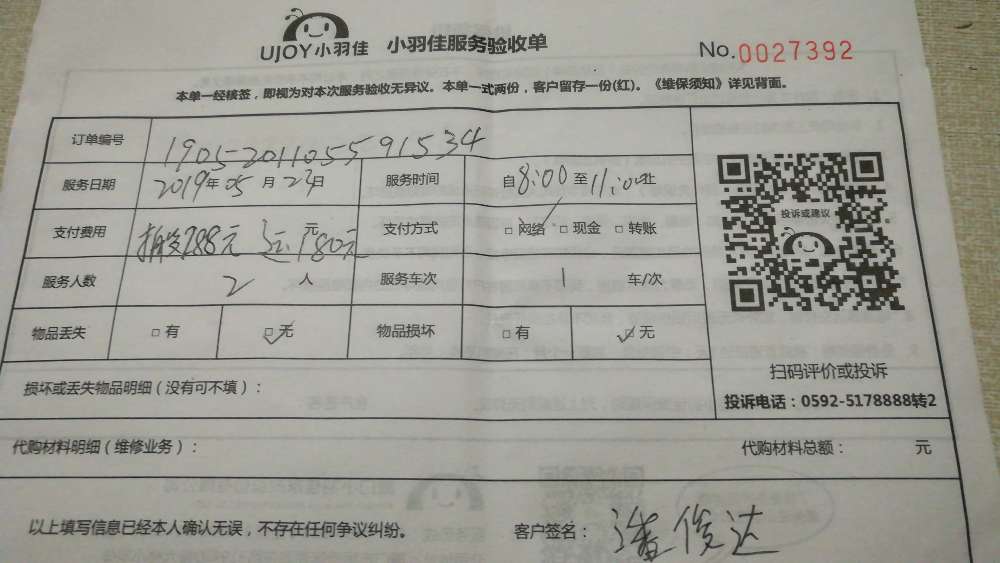 UJOY小羽佳 小羽佳服务验收单 No.0027392
本单一经核签，即视为对本次服务验收无异议。本单一式两份，客户留存一份(红)。《维保须知》详见背面。
订单编号 190520110559 1534
服务日期 2019年05月23日 服务时间 自8:00至11:00止
支付费用 搬288元 运180元 元 支付方式 □网络 □现金 □转账
服务人数 2 人 服务车次 1 车/次
物品丢失 □有 □无 物品损坏 □有 □无
投诉或建议
扫码评价或投诉
投诉电话：0592-5178888转2
损坏或丢失物品明细（没有可不填）：
代购材料明细（维修业务）： 代购材料总额： 元
以上填写信息已经本人确认无误，不存在任何争议纠纷。 客户签名： 潘俊达